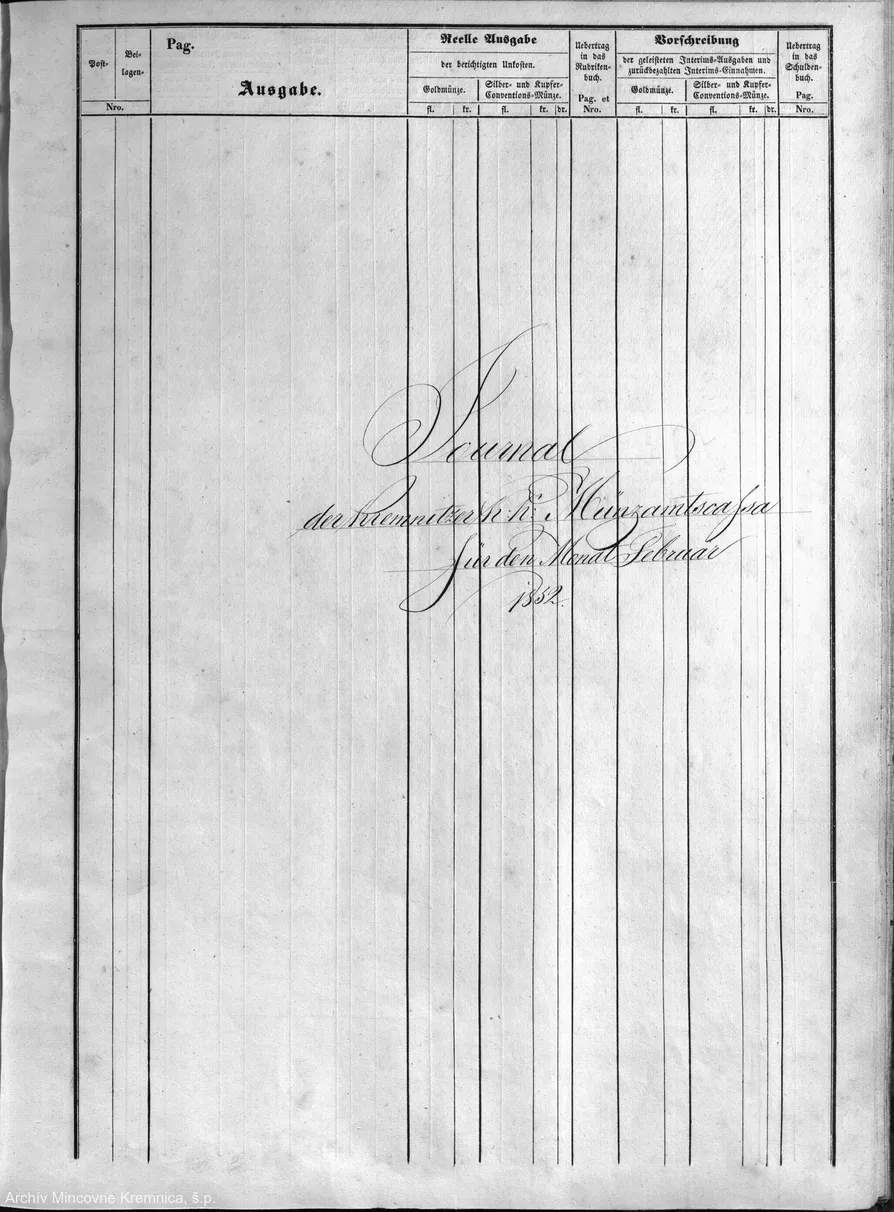 Post-
Bei-
lagen-
Nro.
Pag.
Ausgabe.
Reelle Ausgabe
der berichtigten Unkosten.
Goldmünze.
Silber- und Kupfer-
Conventions-Münze.
fl.
kr.
fl.
kr.
dr.
Uebertrag
in das
Rubriken-
buch.
Pag. et
Nro.
Vorschreibung
der geleisteten Interims-Ausgaben und
zurückbezahlten Interims-Einnahmen.
Goldmünze.
Silber- und Kupfer-
Conventions-Münze.
fl.
kr.
fl.
kr.
dr.
Uebertrag
in das
Schulden-
buch.
Pag.
Nro.
Journal
der Kremnitzer k. k. Münzamtscassa
für den Monat Februar
1852.
Archív Mincovne Kremnica, š.p.